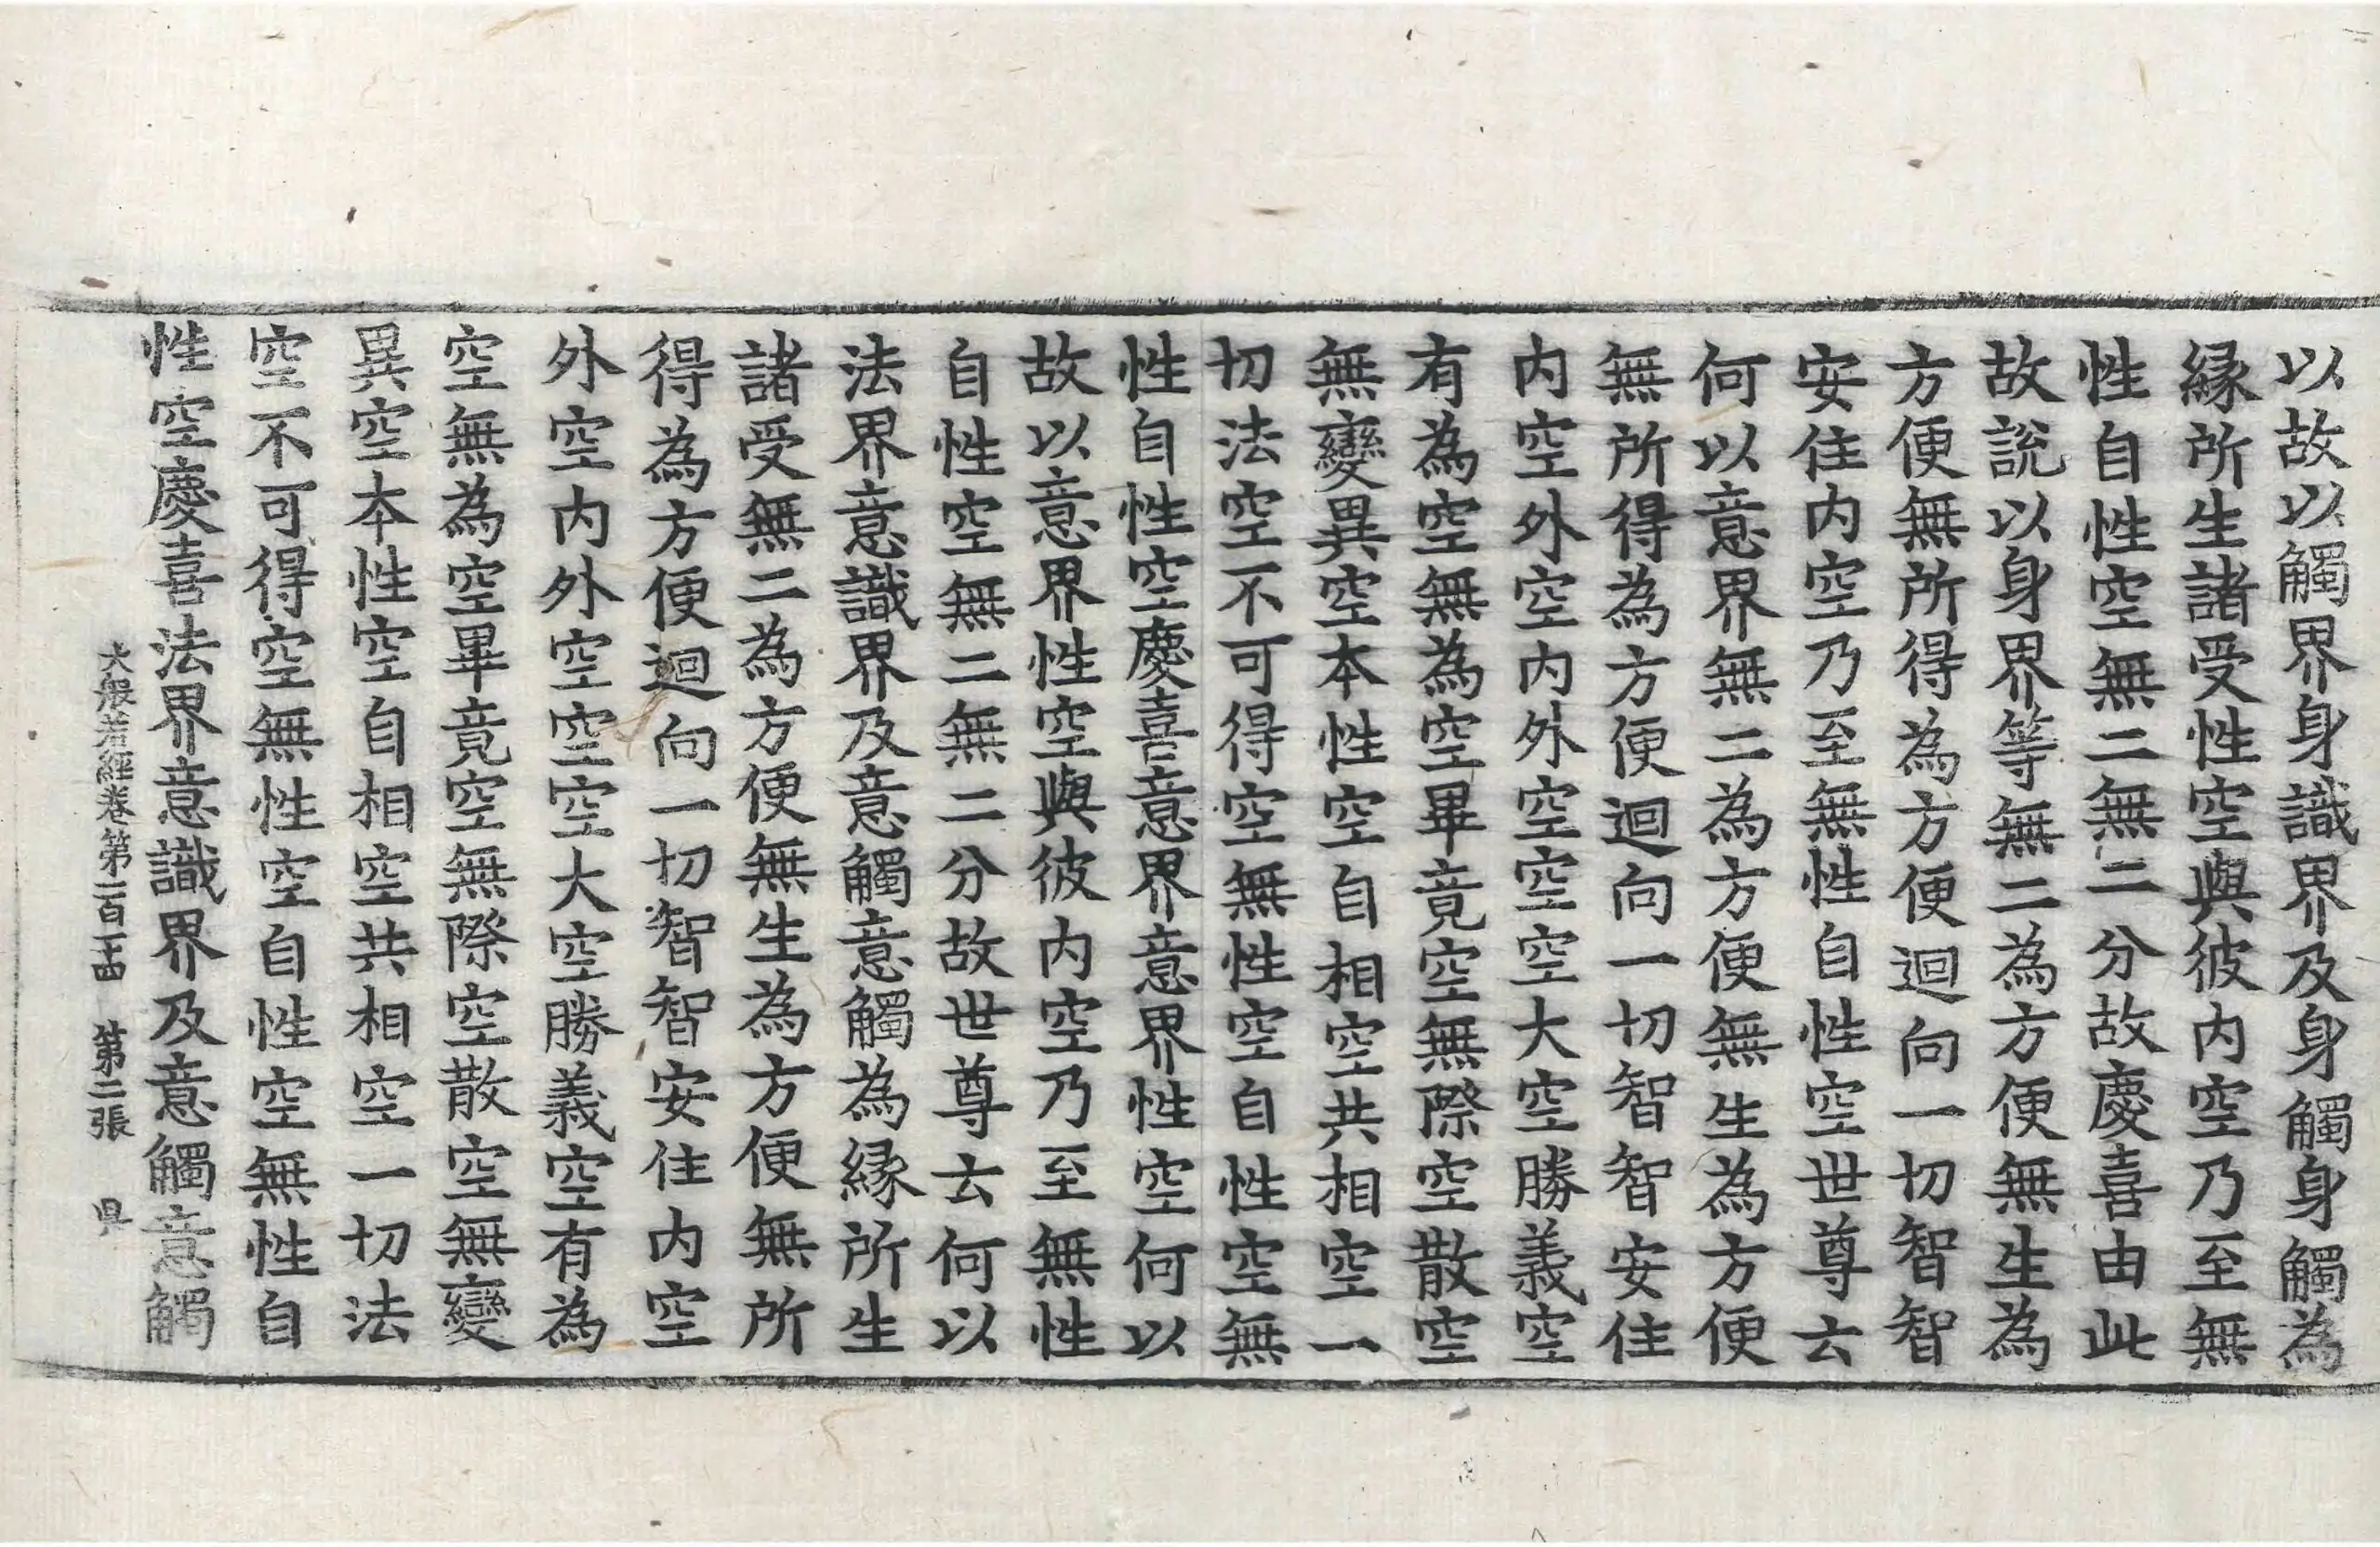 以故以觸界身識界及身觸身觸為
縁所生諸受性空與彼内空乃至無
性自性空無二無二分故慶喜由此
故說以身界等無二為方便無生為
方便無所得為方便迴向一切智智
安住内空乃至無性自性空世尊云
何以意界無二為方便無生為方便
無所得為方便迴向一切智智安住
内空外空内外空空空大空勝義空
有為空無為空畢竟空無際空散空
無變異空本性空自相空共相空一
切法空不可得空無性空自性空無
性自性空慶喜意界意界性空何以
故以意界性空與彼内空乃至無性
自性空無二無二分故世尊云何以
法界意識界及意觸意觸為縁所生
諸受無二為方便無生為方便無所
得為方便迴向一切智智安住内空
外空内外空空空大空勝義空有為
空無為空畢竟空無際空散空無變
異空本性空自相空共相空一切法
空不可得空無性空自性空無性自
性空慶喜法界意識界及意觸意觸
大般若經卷第一百一十四 第二張 昃